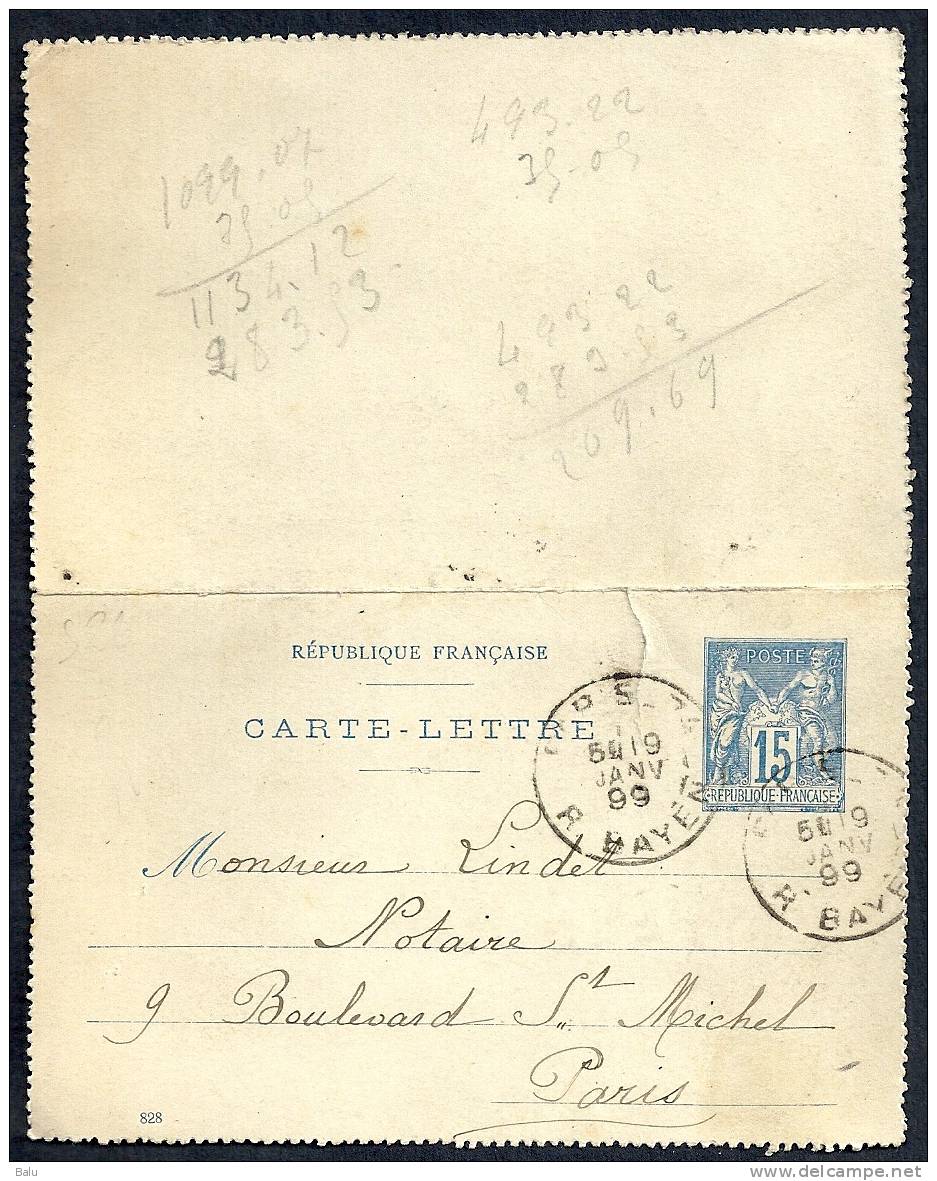 1099.07
35.05
1134.12
283.53
493.22
35.05
493.22
283.53
209.69
RÉPUBLIQUE FRANÇAISE
CARTE-LETTRE
POSTE
15
RÉPUBLIQUE FRANÇAISE
19
JANV
99
R. BAYEN
19
JANV
99
R. BAYEN
Monsieur Lindet
Notaire
9 Boulevard St Michel
Paris
828
Balu
www.delcampe.net